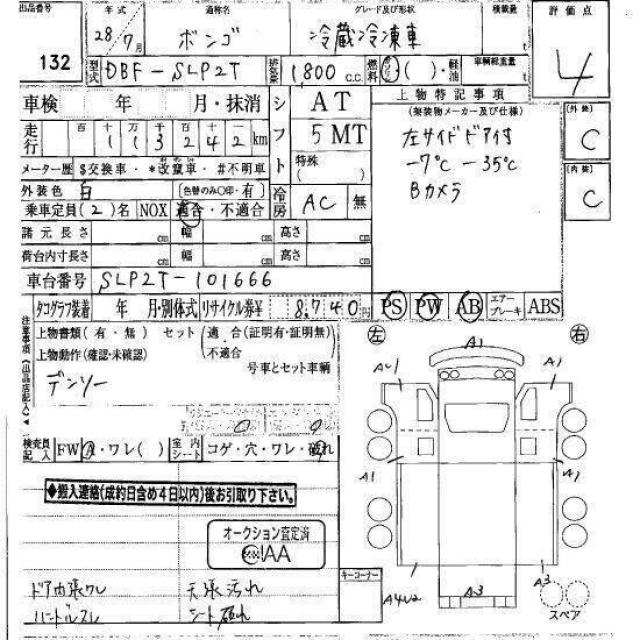 出品番号 132
年式 28年 7月
通称名 ボンゴ
グレード及び形状 冷蔵冷凍車
積載量 t
評価点 4
型式 DBF-SLP2T
排気量 1,800 C.C.
燃料 ガソリン ( )・軽油
車輌総重量 t
車検 年 月・抹消
シフト AT 5MT
特殊 ( )
走行 百 十 万 千 百 十 113242 km
メーター歴 $交換車・*改竄車・#不明車
上物特記事項
(架装物メーカー及び仕様)
左サイドドア付
-7℃ -35℃
Bカメラ
外装 C
内装 C
外装色 白 (色替のみ○印・有)
冷房 AC 無
乗車定員(2)名 NOX 適合・不適合
諸元長さ cm 幅 cm 高さ cm
荷台内寸長さ cm 幅 cm 高さ cm
車台番号 SLP2T-101666
タコグラフ装着 年 月・別体式 リサイクル券¥ 8,740円 PS PW AB エアーブレーキ ABS
注意事項(出品店記入)
上物書類(有・無) セット(適合(証明有・証明無)
上物動作(確認・未確認) 不適合
号車とセット車輌
デンソー
左 右
A1
A1
A1
A1
A3
A3
スペア
検査員記入 FW A・ワレ( ) 室内シート コゲ・穴・ワレ・破れ
◆搬入連絡(成約日含め4日以内)後お引取り下さい。
オークション査定済
IAA
キーコーナー
ドア内張ワレ 天張汚れ
ハンドルスレ シート破れ